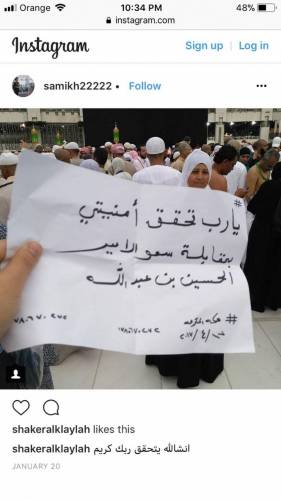 Orange 10:34 PM 48%
instagram.com
Instagram Sign up | Log in
samikh22222 • Follow
#
يارب تحقق أمنيتي
بمقابلة سمو الامير
الحسين بن عبدالله
# مكه المكرمه
shakeralklaylah likes this
shakeralklaylah انشالله يتحقق ربك كريم
JANUARY 20